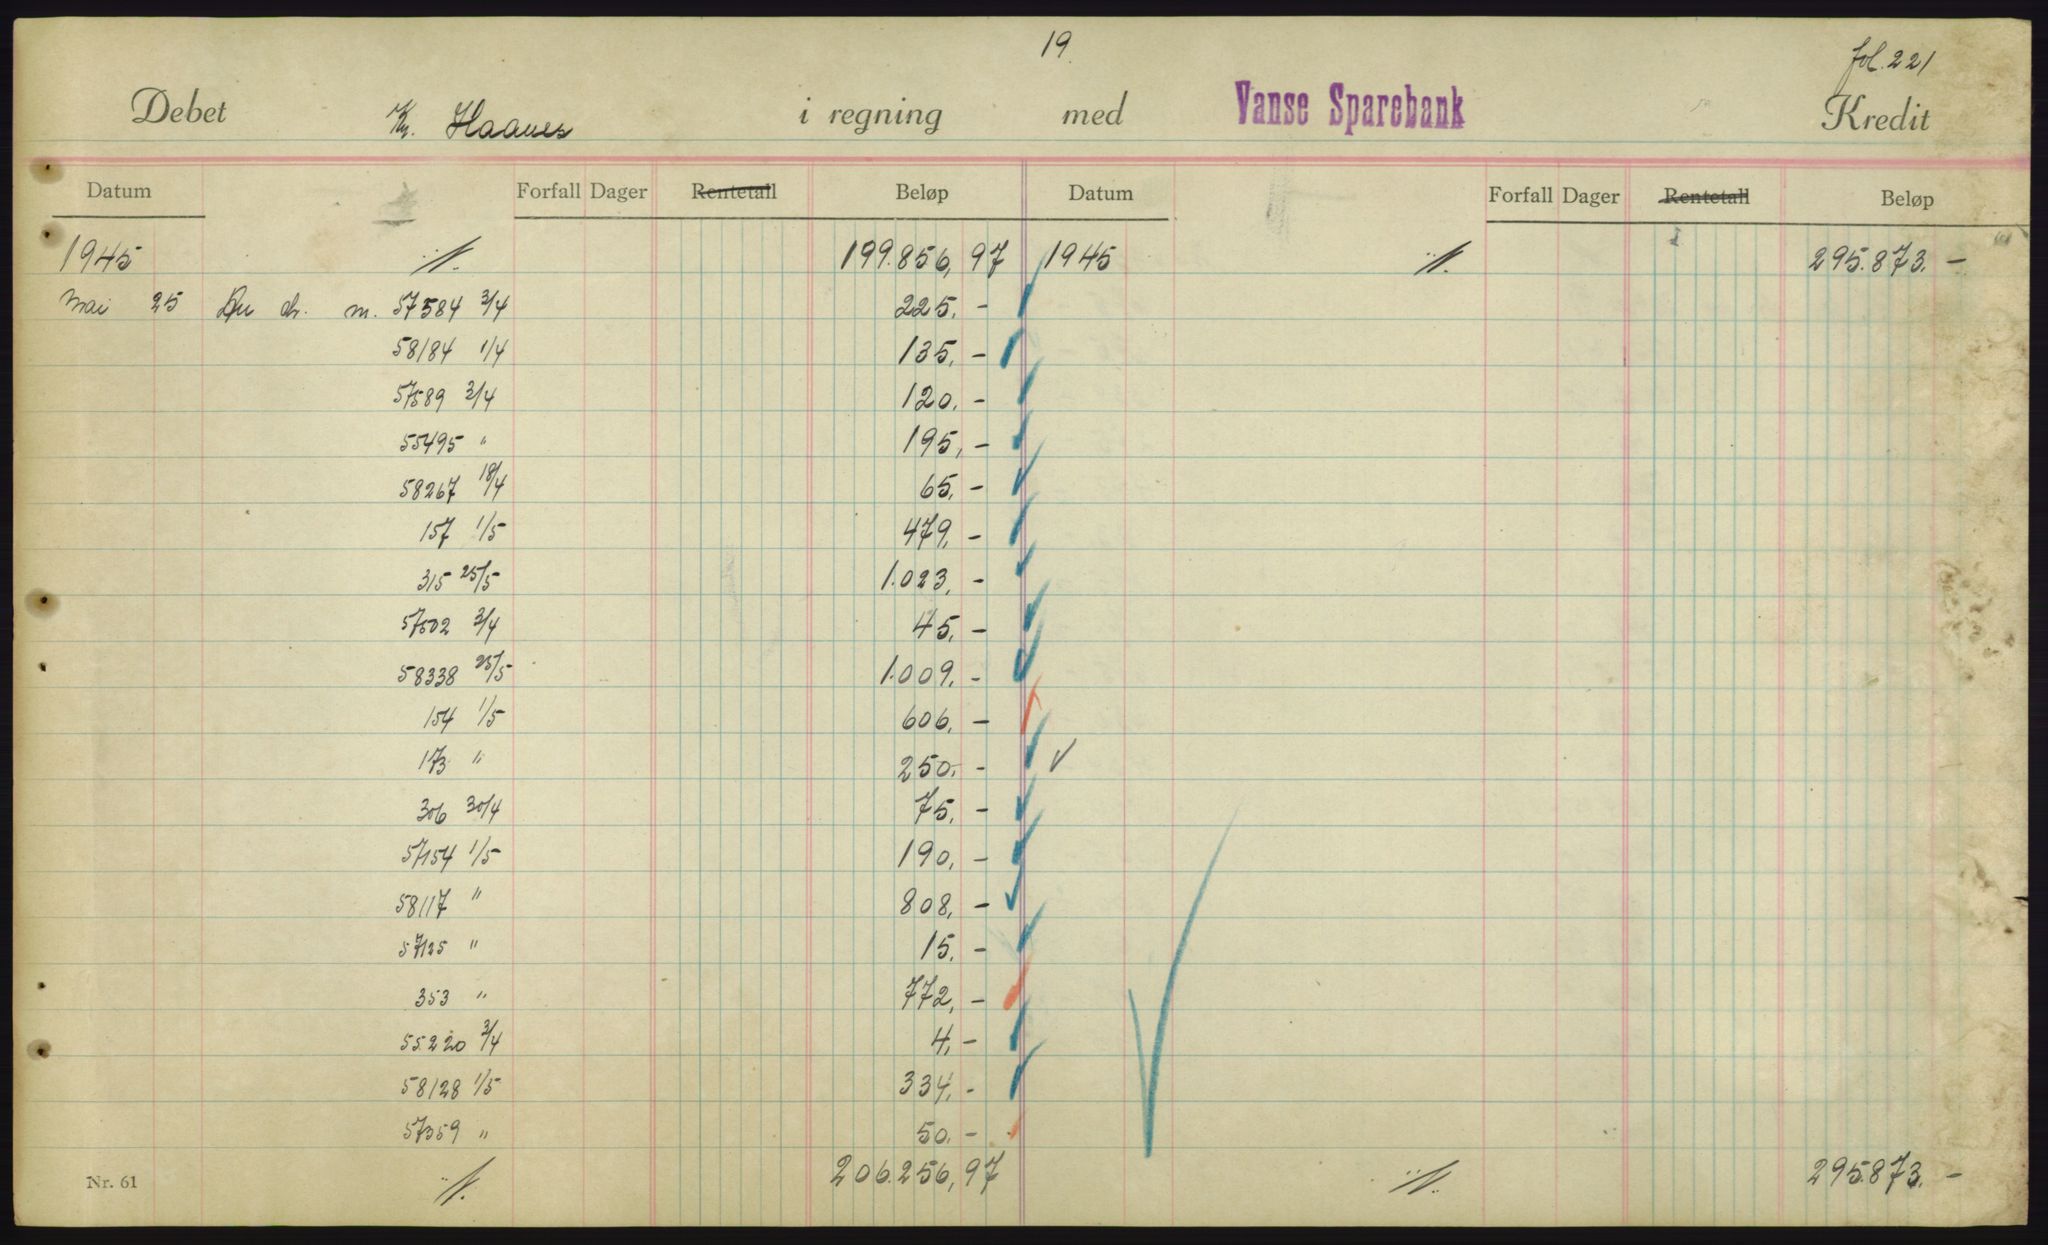 19.
fol. 221
Debet Kr. Haanes i regning med Vanse Sparebank Kredit
Datum Forfall Dager Rentetall Beløp Datum Forfall Dager Rentetall Beløp
1945 199.856,97 1945 295.873.-
mai 25 m. 57584 3/4 225.-
58184 1/4 135.-
57589 3/4 120.-
55495 " 195,-
58267 18/4 65.-
157 1/5 479.-
315 25/5 1.023.-
57502 3/4 45.-
58338 25/5 1.009.-
154 1/5 606.-
173 " 250.-
306 30/4 75.-
57154 1/5 190.-
58117 " 808.-
57125 " 15.-
353 " 772.-
55220 3/4 4.-
58128 1/5 334.-
57359 " 50.-
Nr. 61 206.256,97 295.873.-